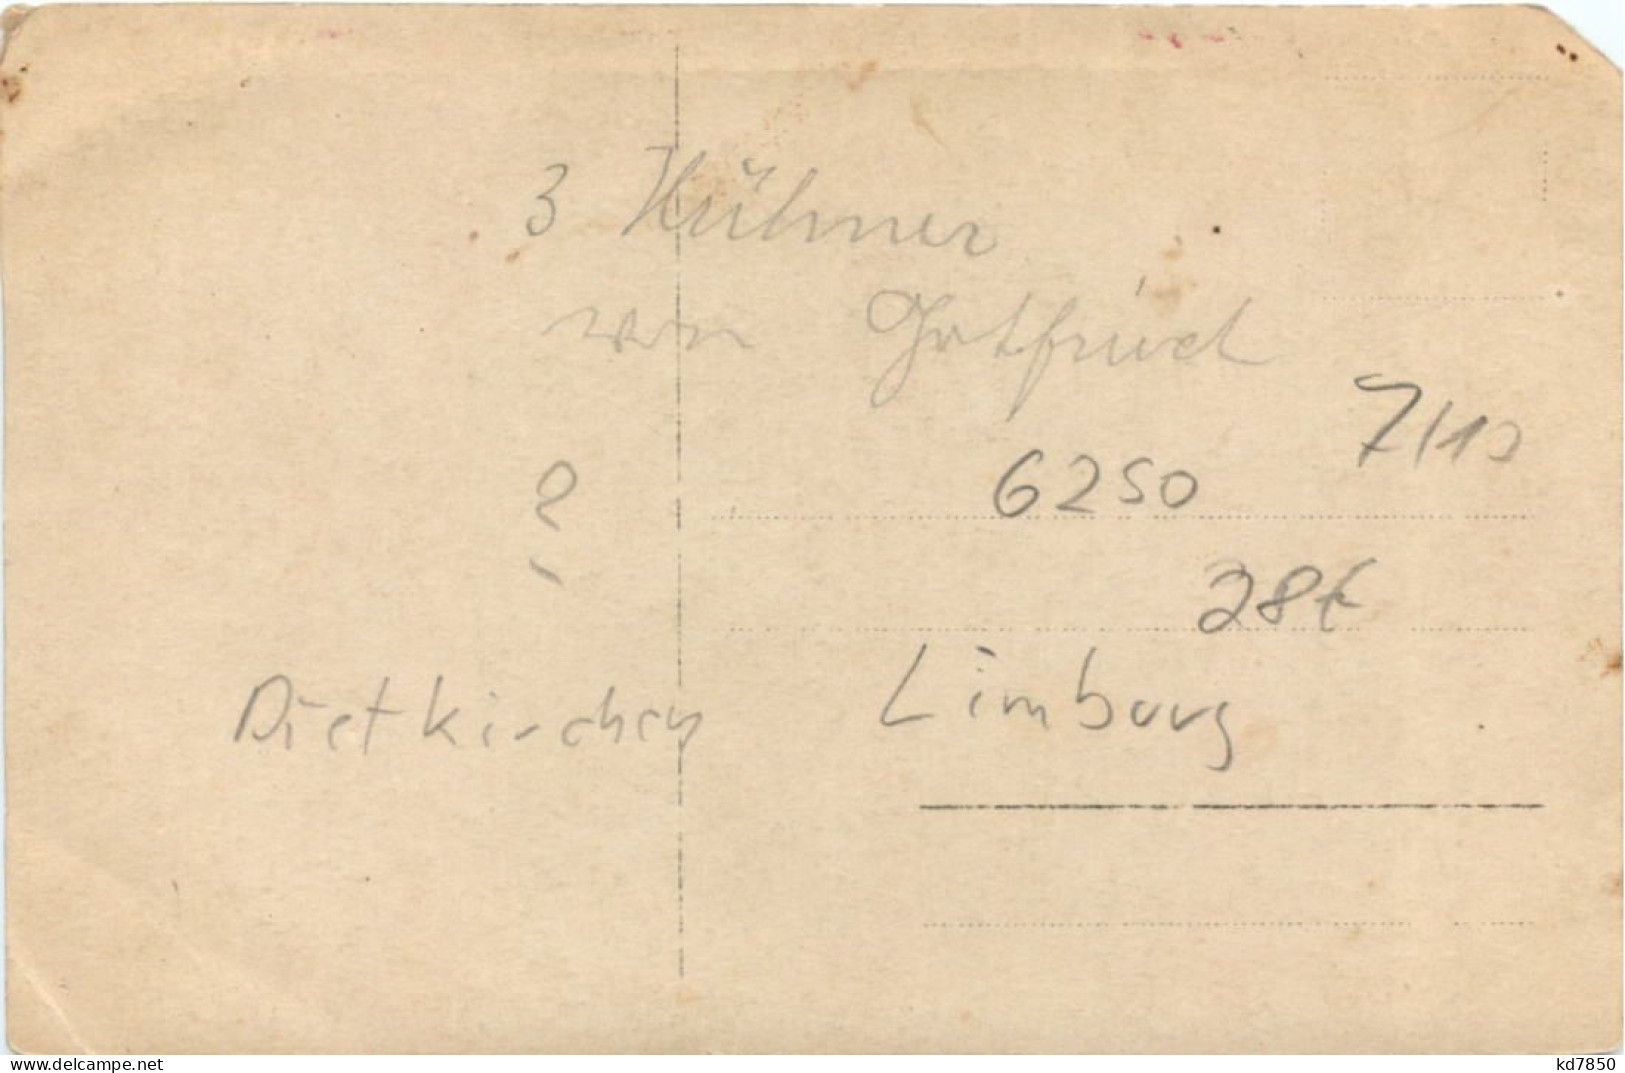 3 Hühner
von Gotfried
7/10
?
6250
28€
Dietkirchen
Limburg
delcampe.net
kd7850